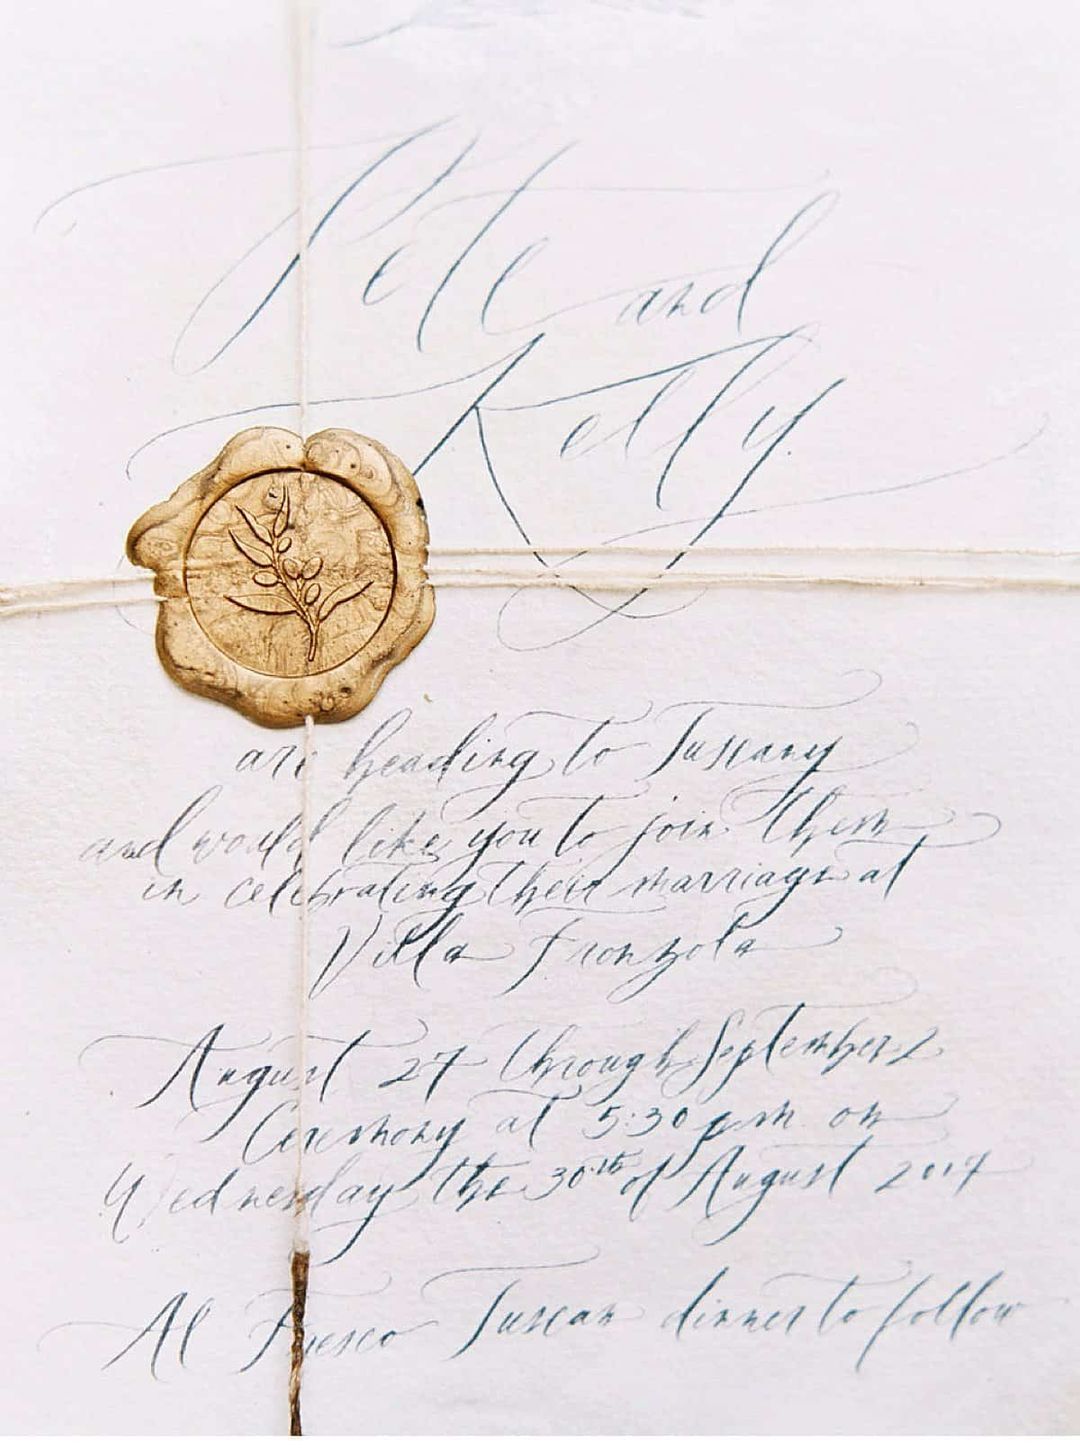 Pete and
Kelly
are heading to Tuscany
and would like you to join them
in celebrating their marriage at
Villa Fronzola
August 27 through September 2
Ceremony at 5:30 p.m. on
Wednesday the 30th of August 2017
Al Fresco Tuscan dinner to follow